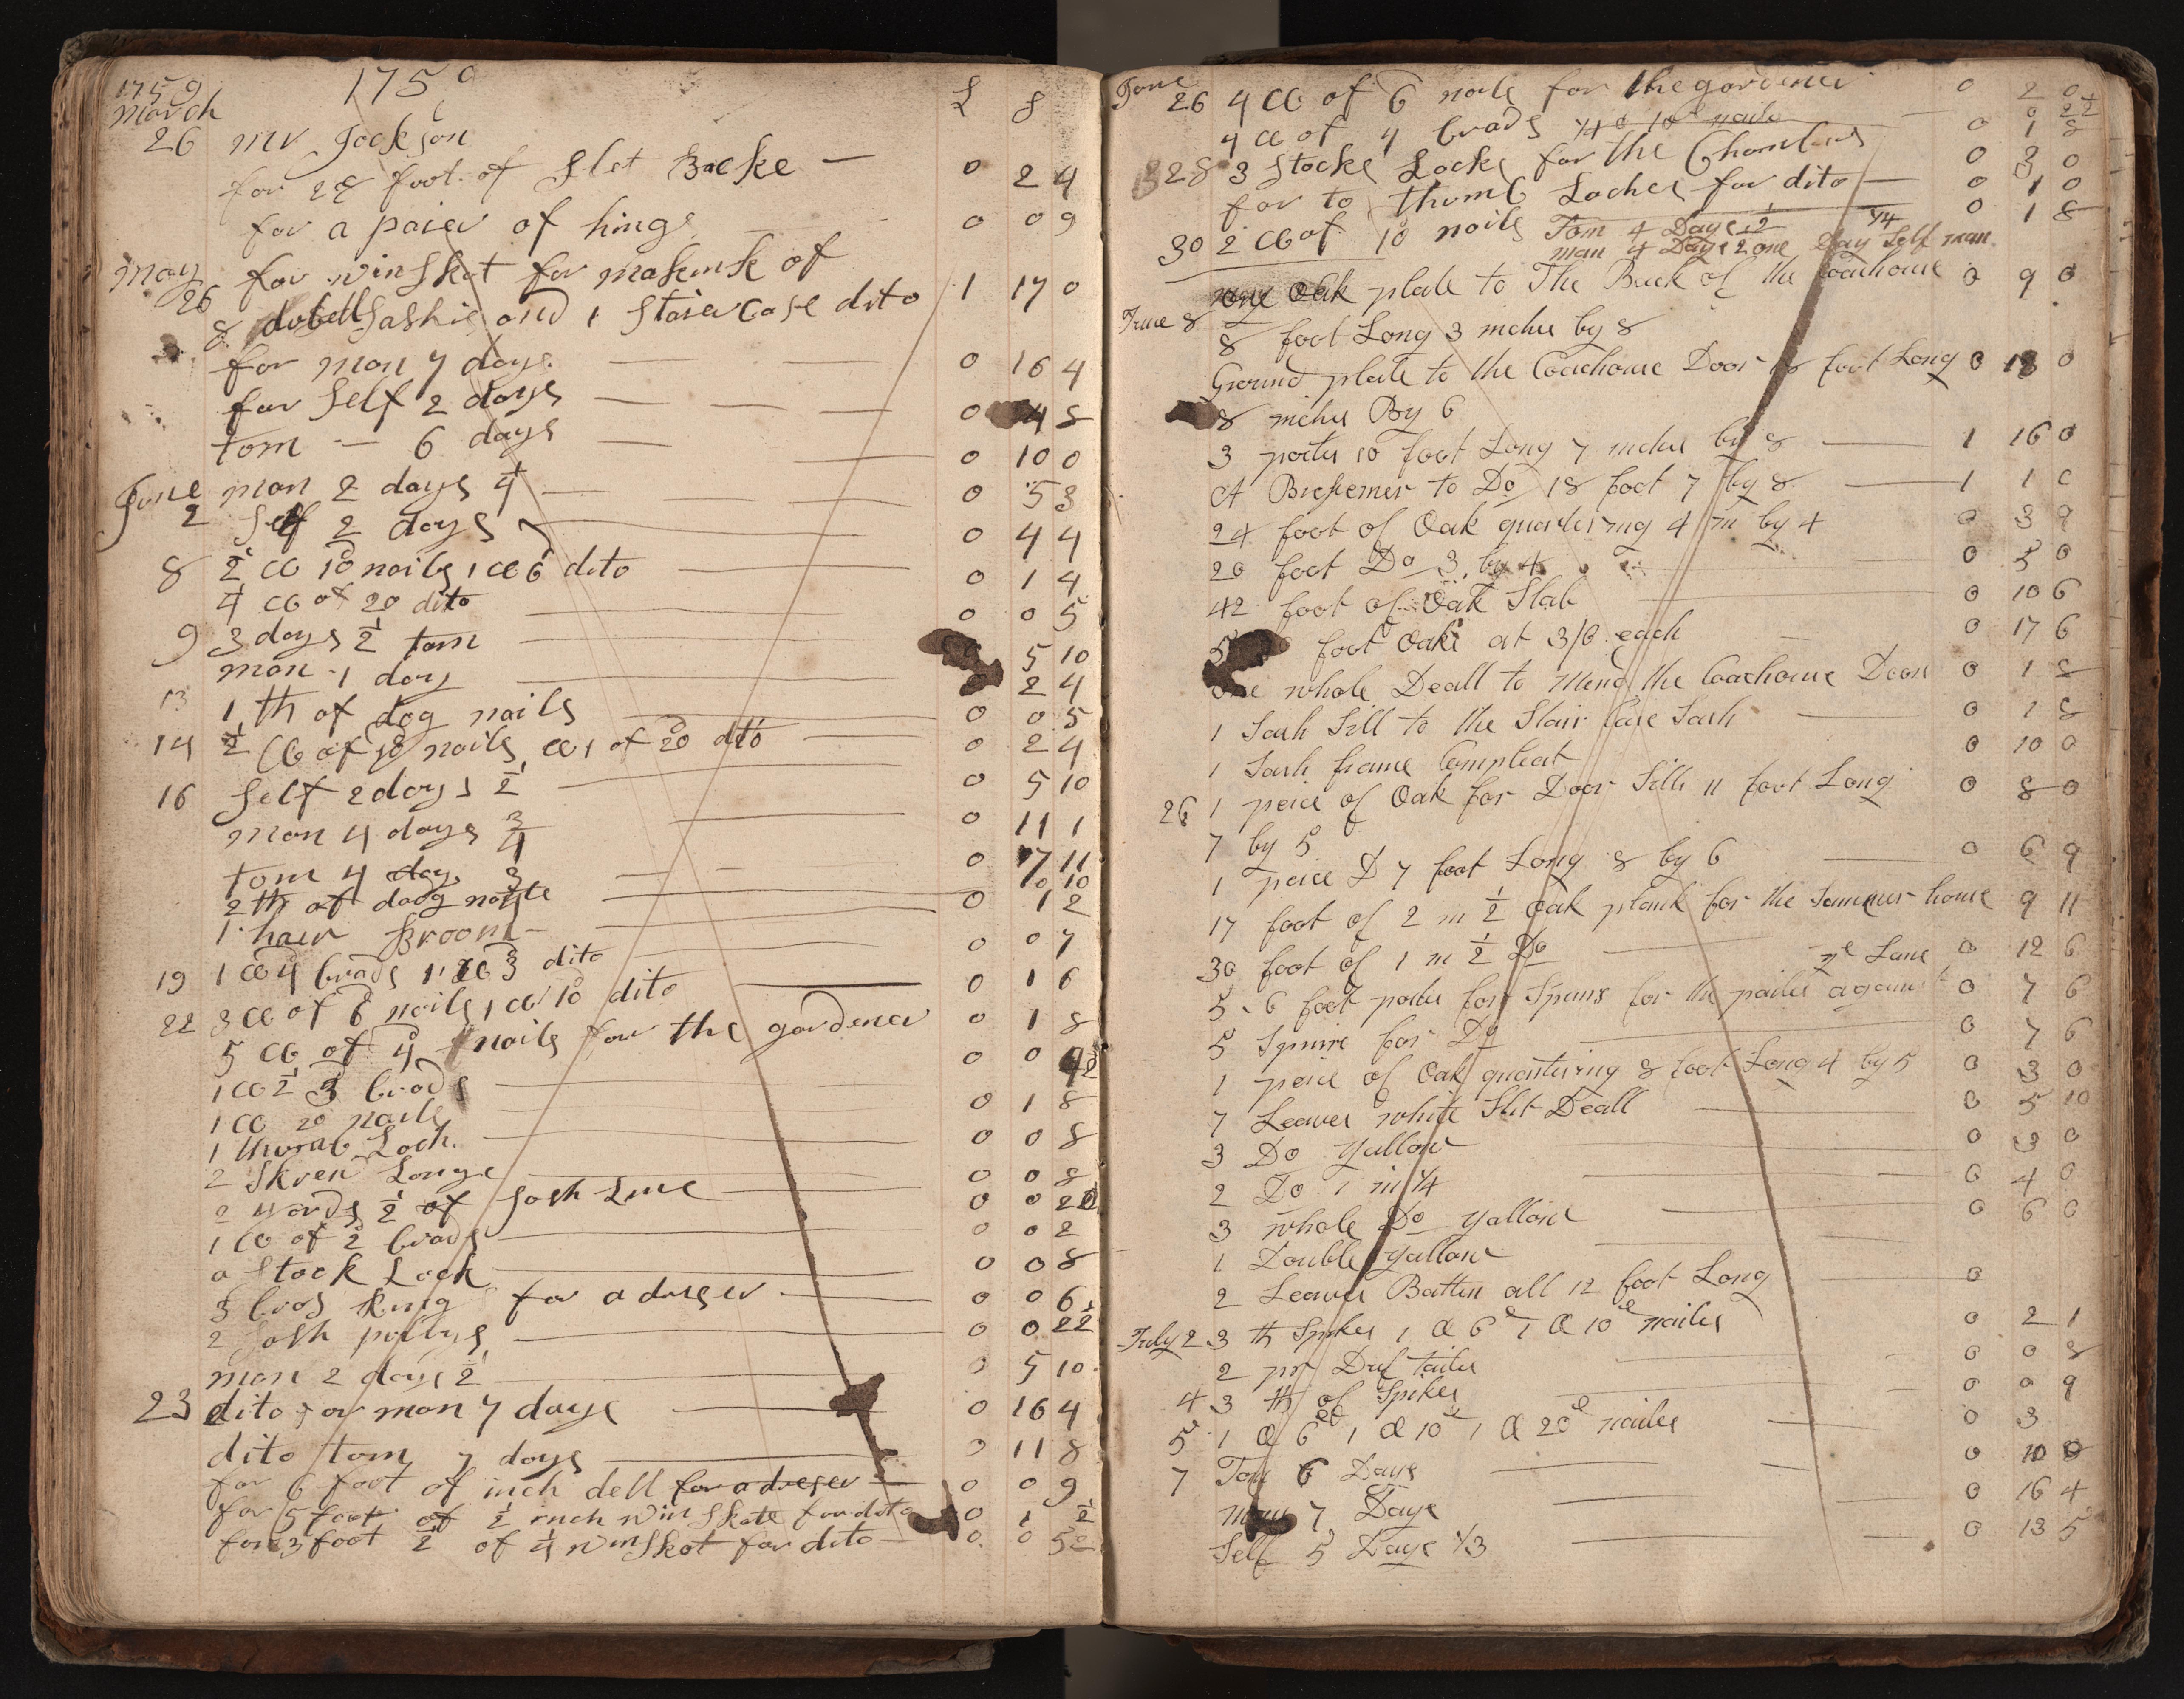 1759 175
March £ s
26 mr Jackson
for 28 foot of slet Backe — 0 2 4
for a paier of hings 0 0 9
may for winskot for makenk of
26 8 dubell Sashis and 1 Staier Case dito 1 17 0
for man 7 days 0 16 4
for self 2 days 0 4 8
tom — 6 days 0 10 0
June man 2 days 1/4 0 5 3
2 self 2 days 0 4 4
8 2 C 10 nails 1 C 6 dito 0 1 4
C of 20 dito 0 0 5
9 3 days 1/2 tom 5 10
man 1 day 2 4
13 1 th of dog nails 0 0 5
14 1/2 C of 10 nails C 1 of 20 dito 0 2 4
16 self 2 days 1/2 0 5 10
man 4 days 3/4 0 11 1
tom 4 days 3/4 0 7 11
2 th of doog nails 0 10
1 haer Broom 0 1 2
19 1 C 4 brads 1 C 3 dito 0 0 7
22 3 C of 6 nails 1 C 10 dito 0 1 6
5 C of 4 nails for the gardener 0 1 8
1 C 1/2 3 brads 0 0
1 C 20 nails 0 1 8
1 thumb Loch 0 0 8
2 Skren Longe 0 0 8
2 yards 1/2 of sash Line 0 0 2
1 C of 2 brads 0 0 2
a Stock Lock 0 0 8
3 bras Ring for a dreser 0 0 6
2 sash pullys 0 0 2 1/2
man 2 days 1/2 0 5 10
23 dito for man 7 days 0 16 4
dito tom 7 days 0 11 8
for 6 foot of inch dell for a dreser — 0 0 9
for 5 foot of 1/2 inch winskote for dito 0 1 1/2
for 3 foot 1/2 of 1/4 winskot for dito 0 0 5
June
26 4 C of 6 nails for the gardener 0 2 0
4 C of 4 brads 10 nails 0 2 1/2
28 3 Stocke Locks for the Chambers 0 1 8
for to thumb Loches for dito — 0 3 0
30 2 C of 10 nails Tom 4 Days 1/2 0 1 0
man 4 Days 2 one Day Self man 0 1 8
one Oak plate to The Back of the Coachouse 0 9 0
June 8 8 foot Long 3 inches by 8
Ground plate to the Coachouse Door 18 foot Long 0 18 0
8 inches By 6
3 postes 10 foot Long 7 inches by 8 1 16 0
A Bresemer to Do 18 foot 7 by 8 1 1 0
24 foot of Oak quartering 4 in by 4 0 3 9
20 foot Do 3 by 4 0 5 0
42 foot of Oak Slab 0 10 6
5 foot Oake at 3/6 each 0 17 6
one whole Deall to mend the Coachouse Door 0 1 8
1 Sash Sill to the Stair Case Sash 0 1 8
1 Sash frame Compleat 0 10 0
26 1 peice of Oak for Door Sills 11 foot Long 0 8 0
7 by 5
1 peice D 7 foot Long 8 by 6 0 6 9
17 foot of 2 in 1/2 Oak plank for the Summer house 9 11
30 foot of 1 in 1/2 Do 0 12 6
ye Lane
5 - 6 foot postes for Spurs for the pailes against 0 7 6
5 Spurs for Do 0 7 6
1 peice of Oak quartering 8 foot Long 4 by 5 0 3 0
7 Leaves white Slit Deall 0 5 10
3 Do Yallow 0 3 0
2 Do 1 in 1/4 0 4 0
3 whole Do Yallow 0 6 0
1 Double Yallow
2 Leaves Batten all 12 foot Long 0
July 2 3 th Spikes 1 C 6d 1 C 10d nailes 0 2 1
2 pr Duf tailes 0 0 8
4 3 th of Spikes 0 0 9
5 1 C 6d 1 C 10d 1 C 20d nailes 0 3
7 Tom 6 Days 0 10 0
man 7 Days 0 16 4
Self 5 Days 1/3 0 13 5